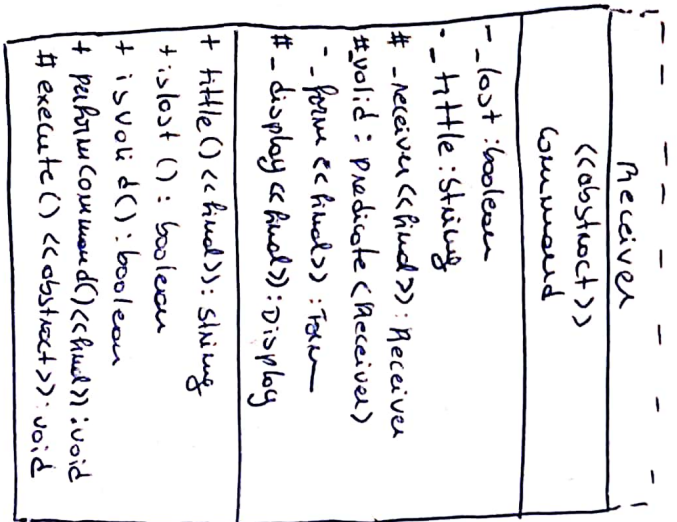 Receiver
<<abstract>>
Command
- _last : boolean
- _tittle : String
# _receiver <<final>> : Receiver
# _valid : Predicate <Receiver>
- _form <<final>> : Form
# _display <<final>> : Display
+ tittle() <<final>> : String
+ islast() : boolean
+ isvalid() : boolean
+ performCommand() <<final>> : void
# execute() <<abstract>> : void